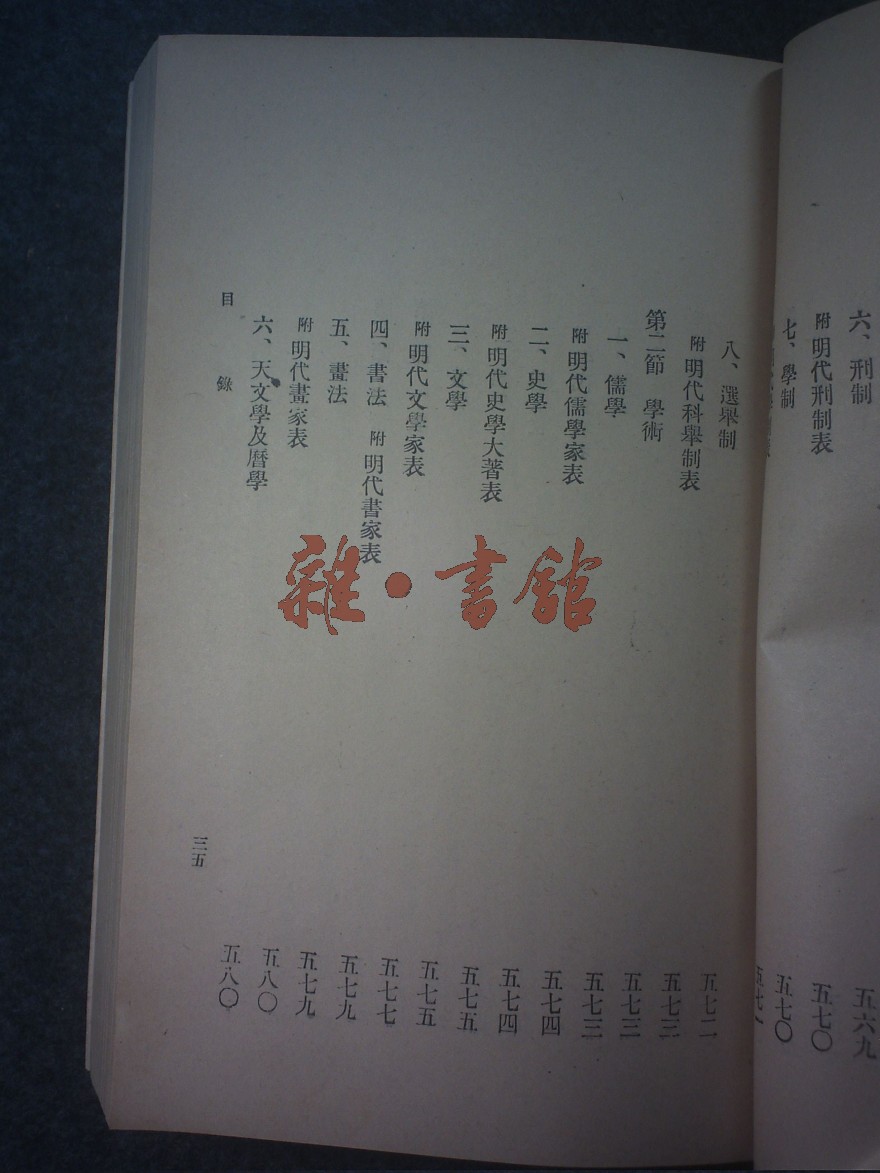 六、刑制 五六九
附 明代刑制表 五七〇
七、學制 五七〇
表 五七一
八、選舉制 五七二
附 明代科舉制表 五七三
第二節 學術 五七三
一、儒學 五七三
附 明代儒學家表 五七四
二、史學 五七四
附 明代史學大著表 五七五
三、文學 五七五
附 明代文學家表 五七七
四、書法 附 明代書家表 五七九
五、畫法 五七九
附 明代畫家表 五八〇
六、天文學及曆學 五八〇
目錄
三五
雜•書館